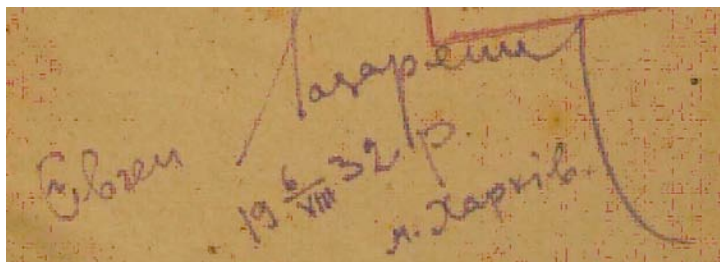 Євген Лазарешу
19 6/VIII 32 р.
м. Харків.